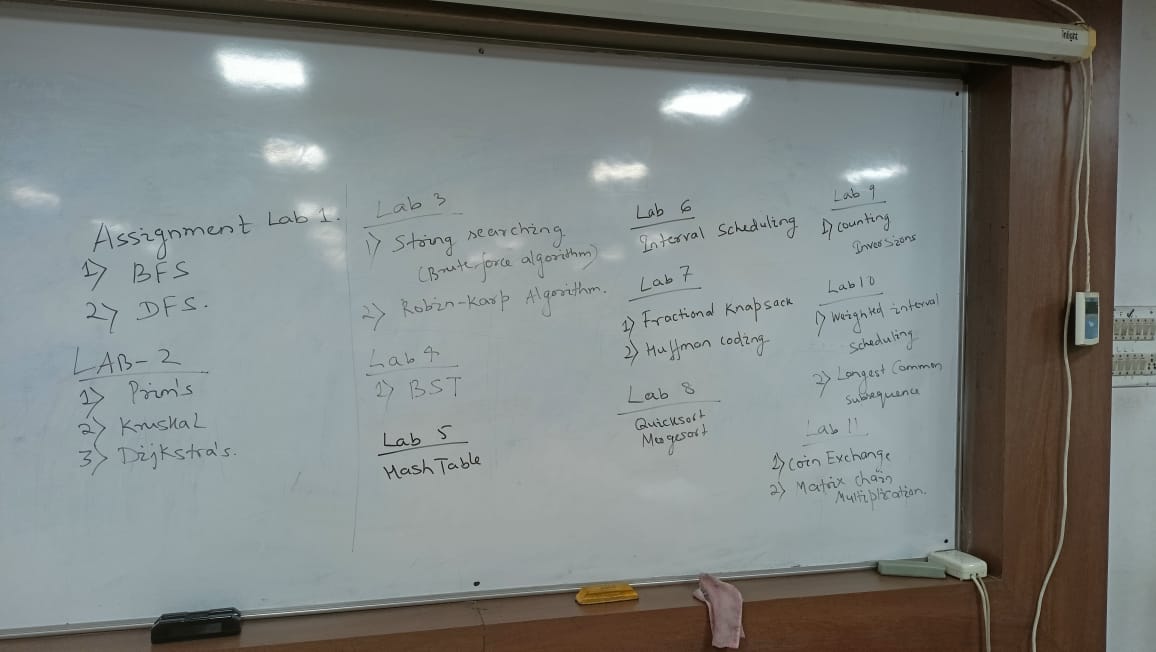 Assignment Lab 1.
1) BFS
2) DFS.
LAB-2
1) Prim's
2) Kruskal
3) Dijkstra's.
Lab 3
1) String searching
(Brute force algorithm)
2) Robin-Karp Algorithm.
Lab 4
1) BST
Lab 5
Hash Table
Lab 6
Interval Scheduling
Lab 7
1) Fractional Knapsack
2) Huffman coding
Lab 8
Quicksort
Mergesort
Lab 9
1) Counting
Inversions
Lab 10
1) Weighted interval
scheduling
2) Longest Common
Subsequence
Lab 11
1) Coin Exchange
2) Matrix chain
Multiplication.
inlight